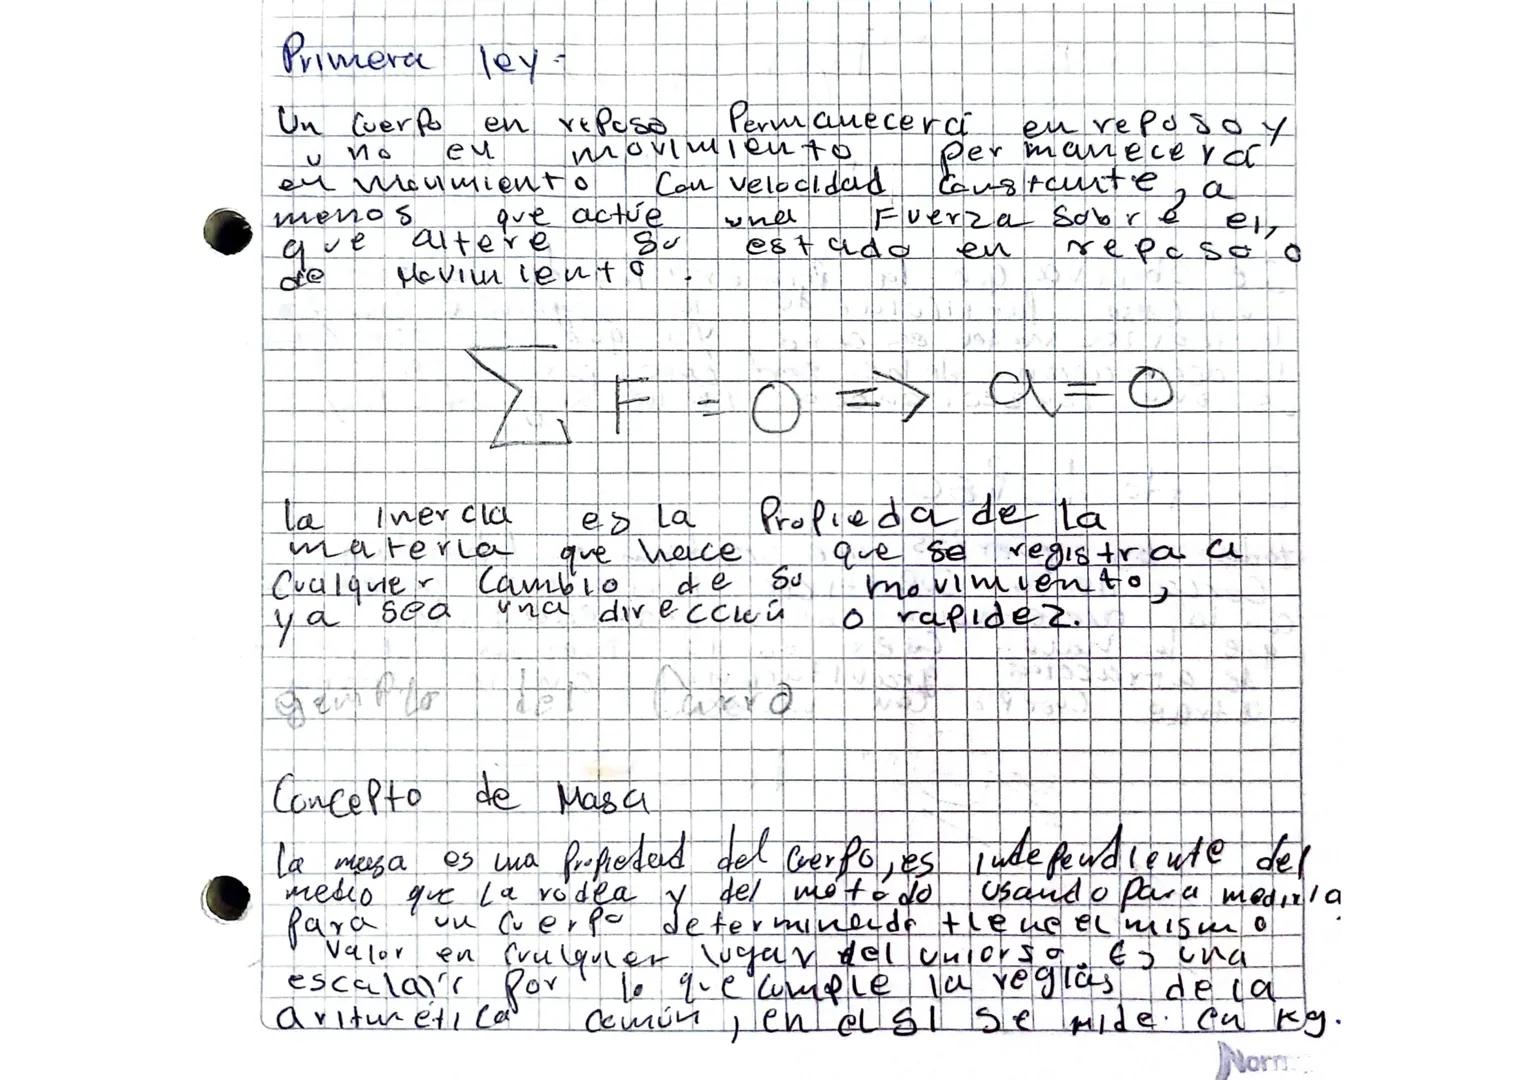 Primera ley-
Un Cuerpo en reposo Permanecerá en reposo y
uno en movimiento permanecerá
en movimiento Con velocidad Constante, a
menos que actúe una Fuerza sobre el,
que altere su estado en reposo o
de Movimiento.
∑ F = 0 => a = 0
la inercia es la Propieda de la
materia que hace que se registra a
Cualquier Cambio de su movimiento,
ya sea una dirección o rapidez.
ejemplo del Carro
Concepto de Masa
la masa es una propiedad del Cuerpo, es independiente del
medio que la rodea y del método usando para medirla
para un Cuerpo determinado tiene el mismo
Valor en Cualquier lugar del uniorso. Es una
escalar por lo que cumple la reglas de la
aritmética común, en el SI se mide en Kg.
Norm